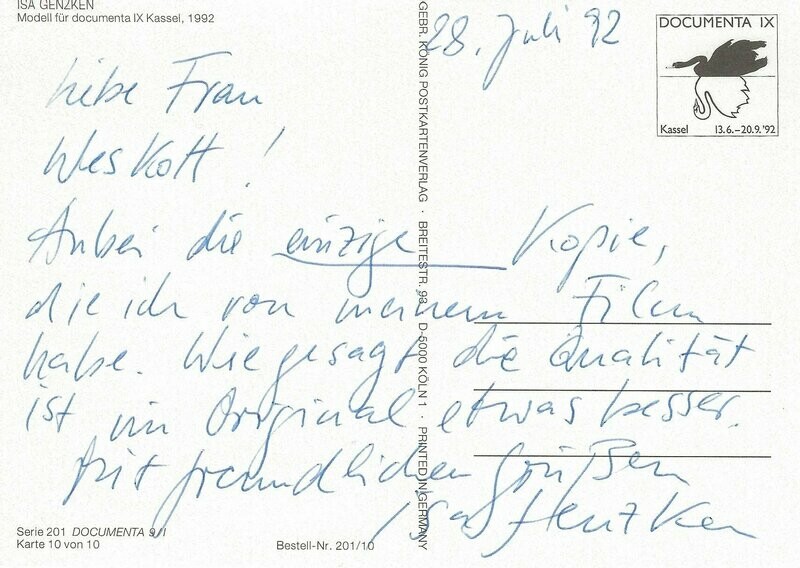 ISA GENZKEN
Modell für documenta IX Kassel, 1992
28. Juli 92
DOCUMENTA IX
Kassel 13.6.–20.9.'92
Liebe Frau
Weskott!
Anbei die einzige Kopie,
die ich von meinem Film
habe. Wie gesagt die Qualität
ist im Original etwas besser.
Mit freundlichen Grüßen
Isa Genzken
GEBR. KÖNIG POSTKARTENVERLAG · BREITESTR. 93 · D-5000 KÖLN 1 · PRINTED IN GERMANY
Serie 201 DOCUMENTA 9/1
Karte 10 von 10
Bestell-Nr. 201/10